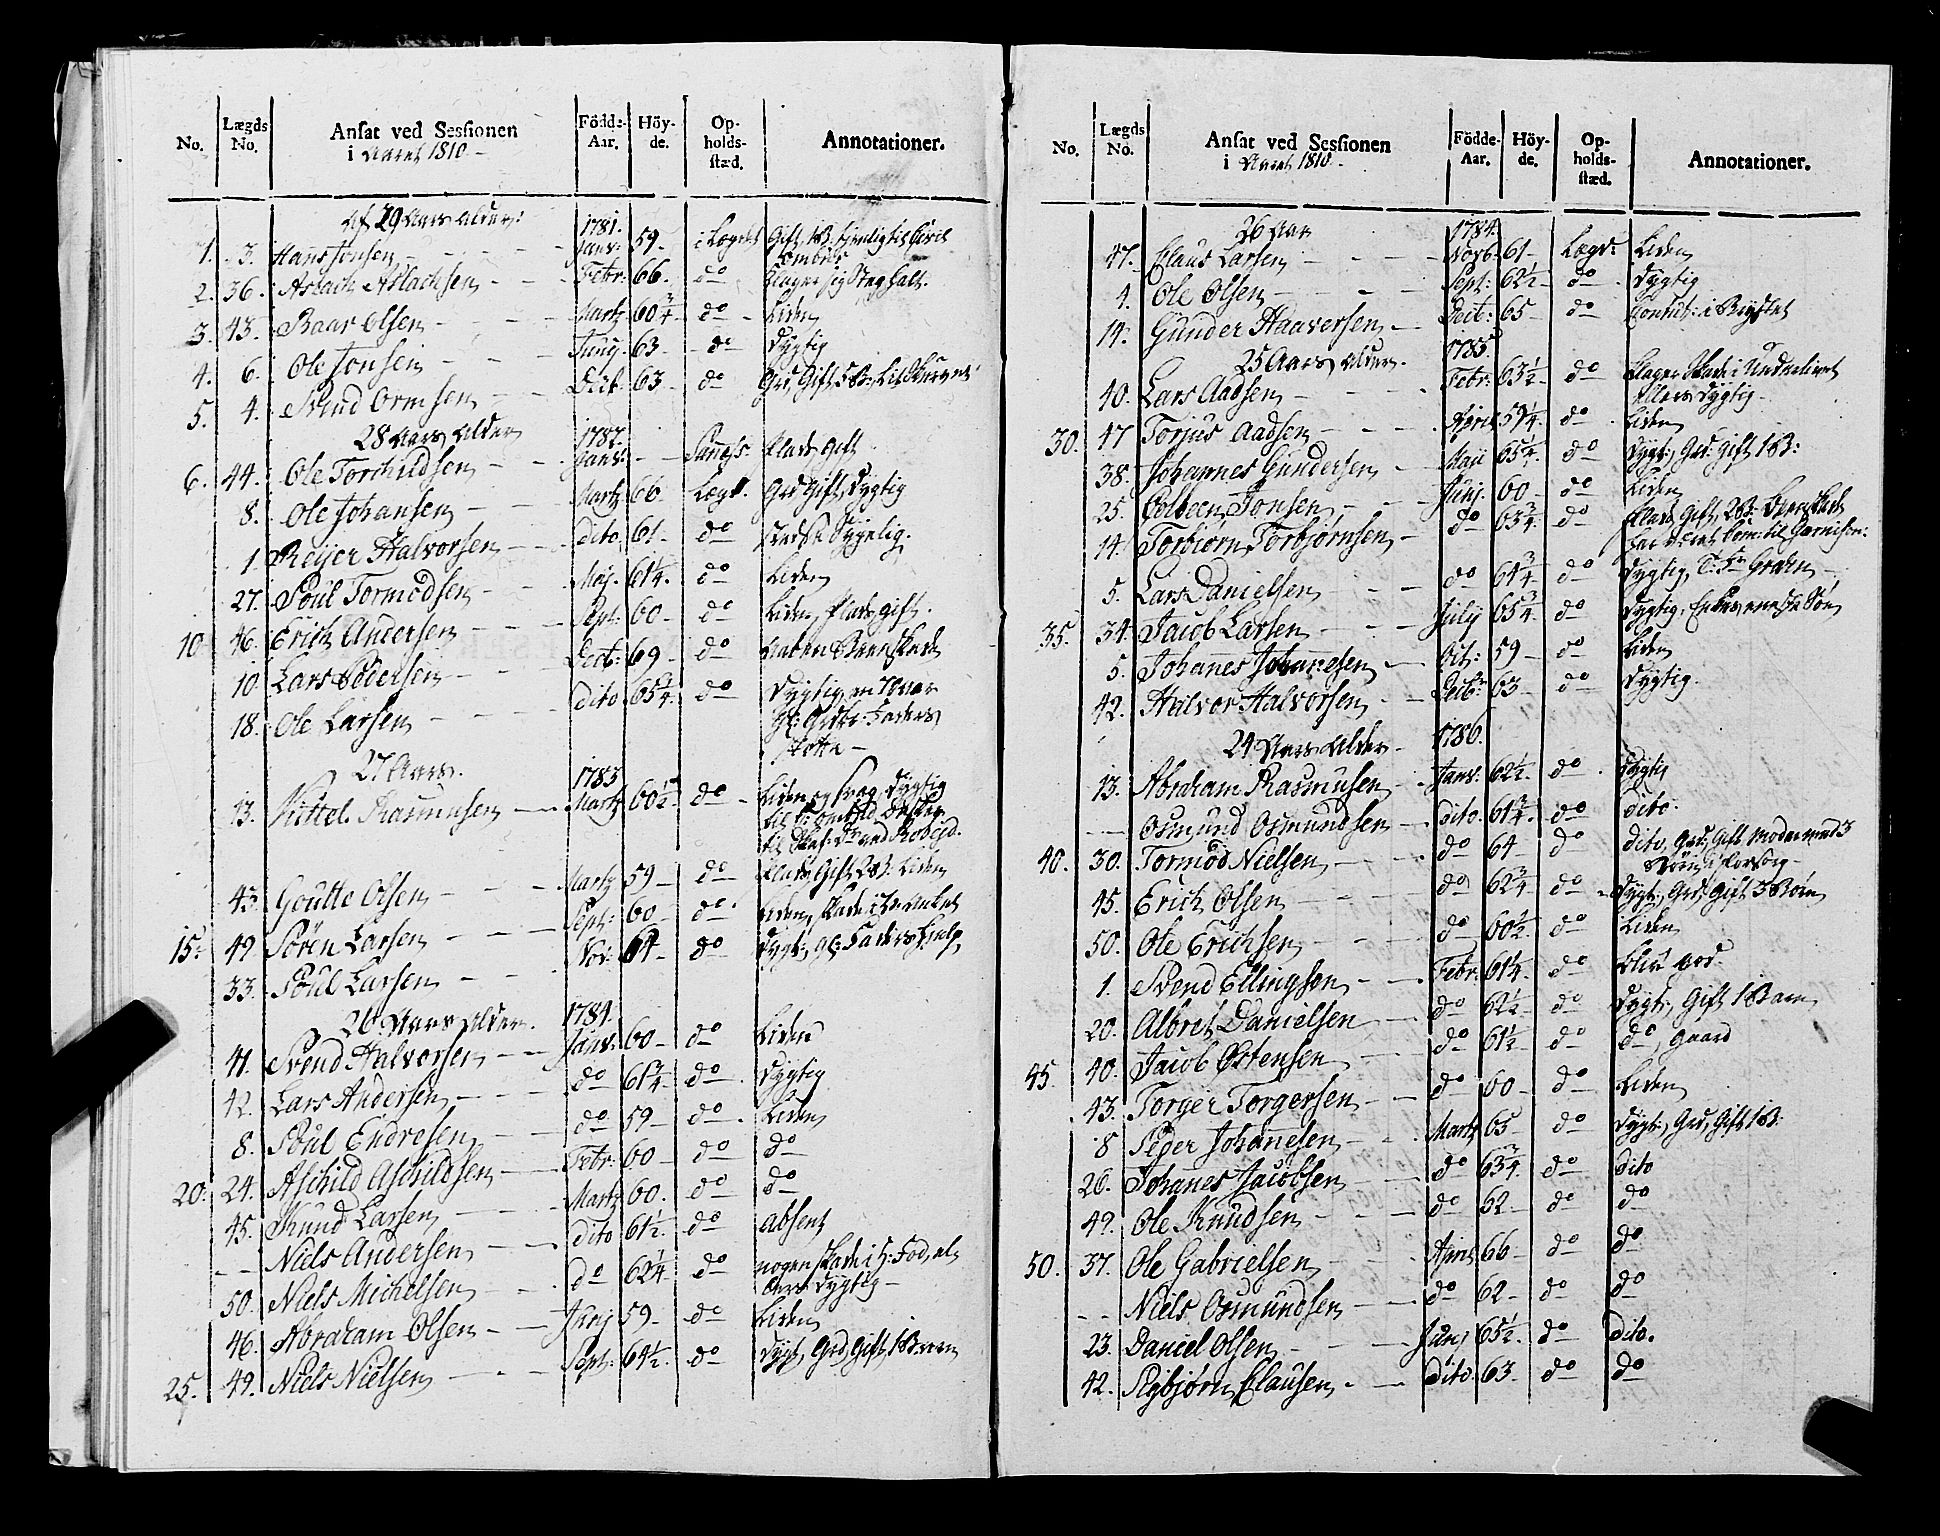 No. Lægds No. Ansat ved Sessionen i Aaret 1810 Födde-Aar. Höyde. Opholdsstæd. Annotationer.
Af 29 Aars Alder: 1781.
1. 3. Hans Jonsen Janv: 59 i Lægdet Gift, 1 B: tienlig til Civil
2. 36. Aslach Aslachsen Febr: 66 do klager sig Steghalt.
3. 43. Baar Olsen Martz 60 3/4 do Liden
4. 6. Ole Jonsen Junÿ 63 do Dygtig
5. 4. Svend Ormsen Decb. 63 do Grd, Gift 5 B:
28 Aars Alder 1782.
6. 44. Ole Torchildsen Janv: Plads Gift
8. Ole Johansen Martz 66 Lægd. Grd Gift, Dygtig
1. Reÿer Halvorsen dito 61 do Sygelig.
27. Poul Tormodsen Maj. 61 1/4 do Liden
10 46. Erich Andersen Sept: 60 do Liden, Plads gift.
10 Lars Pedersen Decb: 69 do Beenskade
18. Ole Larsen dito 65 3/4 do Dygtig
27 Aars. 1783
13. Kittel Rasmusen Martz 60 1/2 do Liden og svag, Dygtig
43. Goutte Olsen Martz 59 do Plads, Gift 2 B. Liden
15. 49 Sören Larsen Sept: 60 do Liden, skade i
33. Poul Larsen Nov: 64 do Dygt: gl: Faders hielp
26 Aars Alder. 1784.
41. Svend Halvorsen Janv: 60 do Liden
42. Lars Andersen do 61 3/4 do Dygtig
8. Poul Endresen do 59 do Liden
20. 24. Aschild Aschildsen Febr: 60 do do
45. Knud Larsen Martz 60. do do
Niels Andersen dito 61 1/2 do absent
50. Niels Michelsen do 62 1/4 do nogen skade i h: Fod, el-
lers Dygtig
46. Abraham Olsen Junj 59 do Liden
25. 49. Niels Nielsen Sept: 64 1/2 do Dygt, Grd, Gift, 1 Barn
No. Lægds No. Ansat ved Sessionen i Aaret 1810 Födde-Aar. Höyde. Opholdsstæd. Annotationer.
26 Aar 1784
47. Claus Larsen Novb. 61 Lægd: Liden
4. Ole Olsen Sept: 62 1/2 do Dygtig
14. Gunder Haaversen Decb: 65 do i Brystet
25 Aars Alder. 1785.
40. Lars Aadsen Febr: 63 1/2 do klager Skade i Underlivet
Ellers Dygtig
30. 47 Torjus Aadsen April 59 1/4 do Liden
38. Johannes Gundersen Maji 65 1/4 do Dygt: Grd: Gift 1 B:
25. Colbeen Jonsen Junj. 60 do Liden
14. Torbiörn Torbjørnsen do 63 3/4 do Plads, Gift, 2 B: Beenskade
5. Lars Danielsen do 64 3/4 do Dygtig,
35. 34. Jacob Larsen Julÿ 65 3/4 do Dygtig, Enkes eneste Søn
5. Johanes Johanesen Oct: 59 do Liden
42. Halvor Halvorsen Decbr 63 do Dygtig.
24 Aars Alder 1786.
13. Abraham Rasmusen Janv: 62 1/2 do Dygtig
Osmund Osmundsen dito 61 3/4 do dito.
40. 30. Tormod Nielsen do 64 do dito, Grd, Gift Moder med 3
45. Erich Olsen do 62 3/4 do Dygt:, Grd, Gift 3 Börn
50. Ole Erichsen do 60 1/2 do Liden
1. Svend Ellingsen Febr: 61 1/4 do
20. Albret Danielsen do 62 1/2 do Dygt:, Gift 1 Barn
45. 40. Jacob Østensen do 61 1/2 do do, Gaard
43. Torger Torgersen do 60 do Liden
8 Peder Johanesen Martz 65 do Dygt:, Grd, Gift 1 B:
26. Johanes Jacobsen do 63 3/4 do dito
49. Ole Knudsen do 62 do do
50. 37. Ole Gabrielsen April 66 do do
Niels Osmundsen do 62 do do
23. Daniel Olsen Junj 65 1/2 do dito.
42. Sigbjørn Clausen dito 63 do do